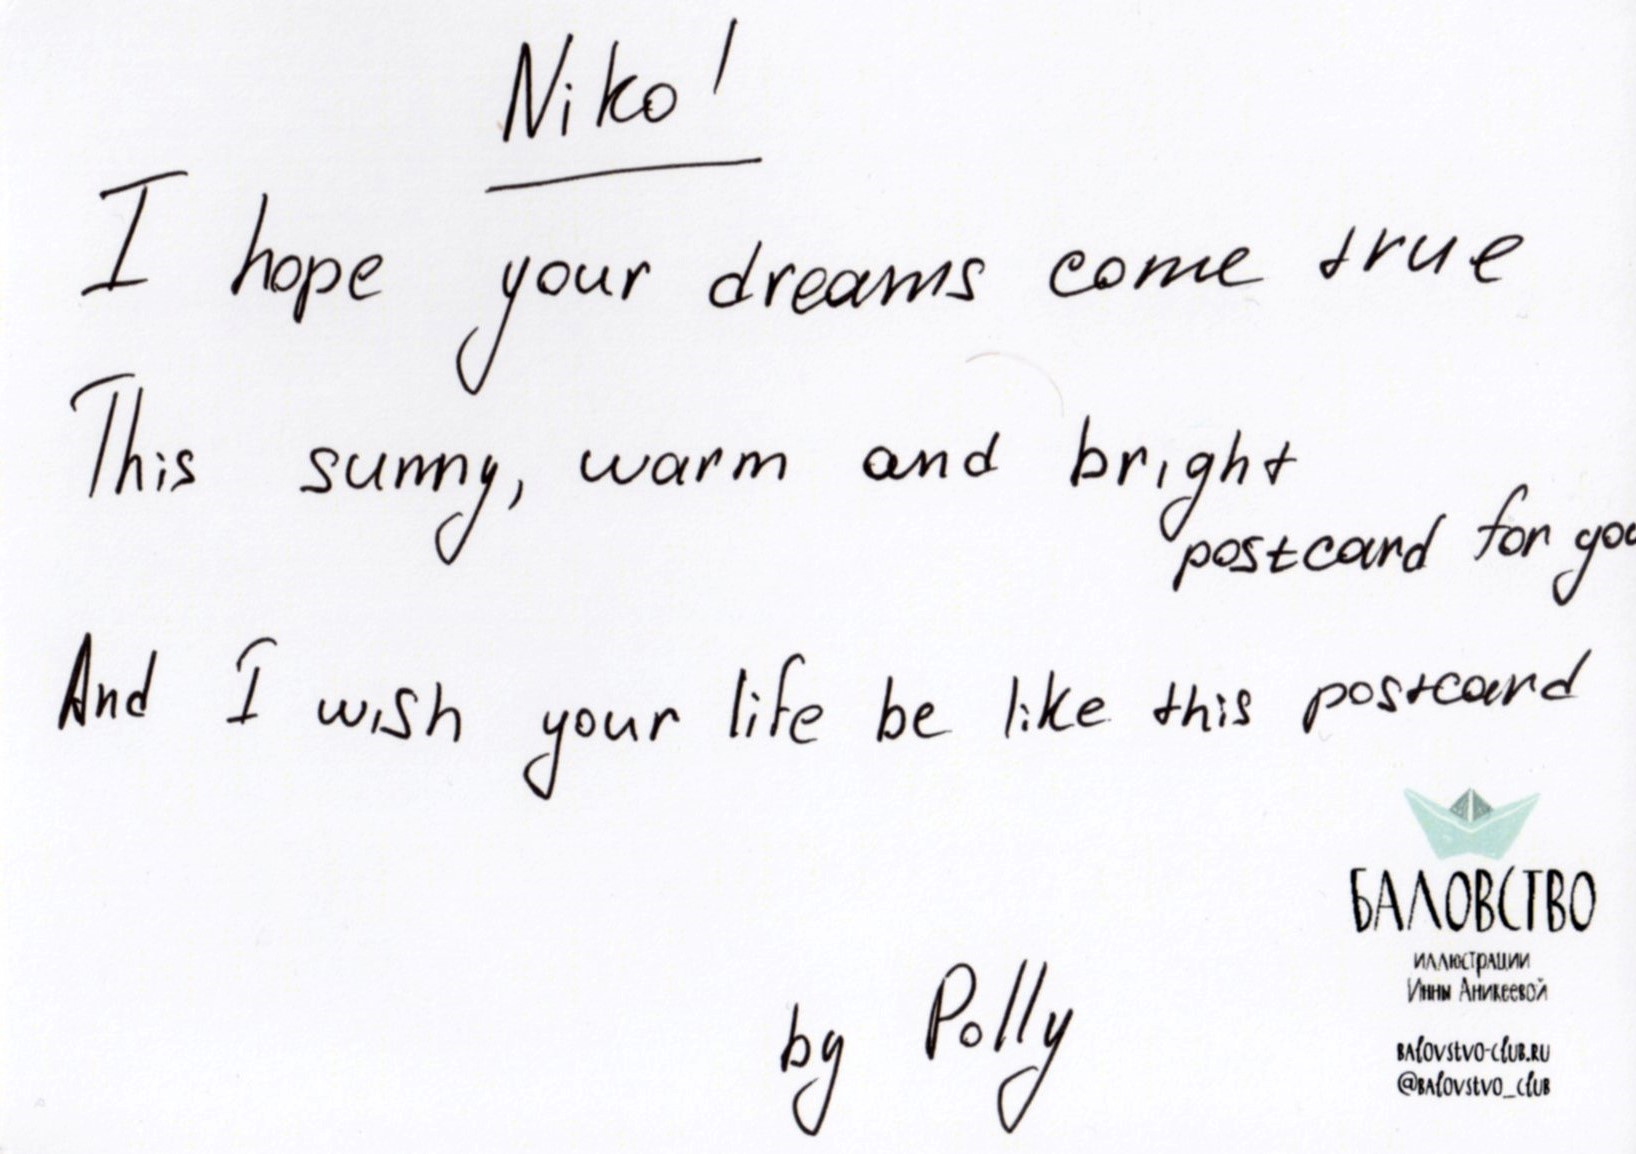 Niko!
I hope your dreams come true
This sunny, warm and bright
postcard for you
And I wish your life be like this postcard
by Polly
БАЛОВСТВО
ИЛЛЮСТРАЦИИ
ИННЫ АНИКЕЕВОЙ
BALOVSTVO-CLUB.RU
@BALOVSTVO_CLUB